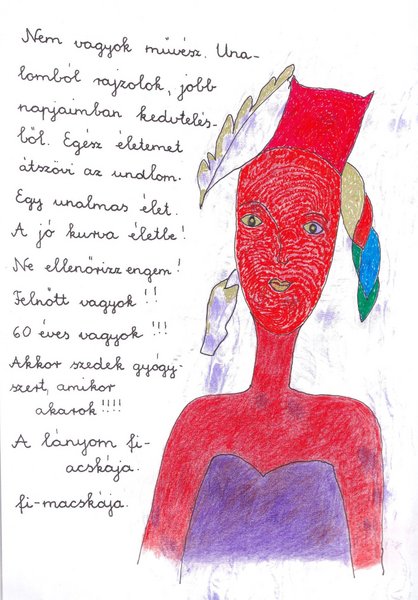 Nem vagyok művész. Una-
lomból rajzolok, jobb
napjaimban kedvtelés-
ből. Egész életemet
átszövi az unalom.
Egy unalmas élet.
A jó kurva életbe!
Ne ellenőrizz engem!
Felnőtt vagyok!!
60 éves vagyok!!!
Akkor szedek gyógy-
szert, amikor
akarok!!!!
A lányom fi-
acskája.
fi-macskája.